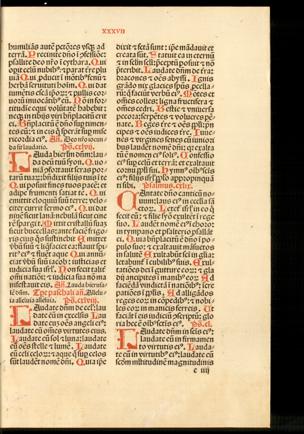 XXXVII
humiliās autē pctōres vsq; ad
terrā. Precinite dño i ɔfessiōe:
psallite deo nřo i cythara. Qui
opit celū nubibꝰ: ⁊ parat tre plu
uiā. Qui pducit i mōtibꝰ fenū: ⁊
herbā seruituti hoīm. Qui dat
iumentis escā ipsoꝝ: ⁊ pullis cor
uoꝝ inuocātibꝰ eū. Nō in for
titudie equi volūtatē habebit:
necꝗ in tibijs viri bñplacitū erit
ei. Bñplacitū ē dño sup timen
tes eū: ⁊ in eis q̄ sperāt sup mise
ricordia eiꝰ.
Lauda hierłm dñm: lau
da deū tuū syon. Qm̄
ɔfortauit seras por
tarū tuaꝝ: bñdixit filijs tuis i te
Qui posuit fines tuos pacē: ⁊
adipe frumenti satiat te. Qui
emittit eloquiū suū terre: velo
citer currit sermo eiꝰ. Qui dat
niuē sicut lanā: nebulā sicut cine
rē spargit. Mittit cristallū suā
sicut buccellas: ante faciē frigo
ris eiꝰ quis sustinebit Emittet
verbū suū ⁊ liquefaciet ea: flabit spi
ritꝰ eiꝰ ⁊ fluent aque Qui annun
ciat verbū suū iacob: iusticias ⁊
iudicia sua isrł. Non fecit talit
omi nationi: ⁊ iudicia sua nō ma
nifestauit eis.
alleluia alleluia.
Laudate dñm de cel: lau
date eū in excelsis Lau
date eū oēs angeli eiꝰ:
laudate eū oēs virtutes eiꝰ.
Laudate eū sol ⁊ luna: laudate
eū oēs stelle ⁊ lumē. Laudate
eū celi celoꝝ: ⁊ aque q̄ sup celos
sūt laudēt nomē dñi. Quia ipe
dixit ⁊ facta sunt: ipe mādauit et
creata sūt. Statuit ea in eternū
⁊ in sclm̄ scli: pceptū posuit ⁊ nō
pteribit. Laudate dñm de tra:
dracones ⁊ oēs abyssi. Ignis
grādo nix glacies spūs pcella
rū: q̄ faciūt verbū eiꝰ. Mōtes et
omēs colles: ligna fructifera ⁊
omēs cedri. Bestie ⁊ vniuersa
pecora: serpētes ⁊ volucres pēna
te. Reges tre ⁊ oēs ppli: prin
cipes ⁊ oēs iudices tre. Iuue
nes ⁊ virgines senes cū iuniori
bus laudēt nomē dñi: q̄ exalta
tū ē nomen eiꝰ soliꝰ. Confessio
eiꝰ sup celū ⁊ terrā: ⁊ exaltauit
cornu ppli sui. Hymnꝰ oībꝰ scis
eiꝰ: filijs isrł pplo appropinquā
ti sibi. Psalmus.cxlix.
Cantate dño canticū no
uum: laus eiꝰ in ecclīa scō
rū. Letet isrł in eo q
fecit eū: ⁊ filie syō exultēt i rege
suo. Laudēt nomē eiꝰ i choro:
in tympano et psalterio psallāt
ei. Quia bñplacitū ē dño i po
pulo suo: ⁊ exaltauit māsuetos
in salutē Exultabūt scī in glīa:
letabunt̄ i cubilibꝰ suis. Exul
tatiōes dei i gutture eoꝝ: ⁊ gla
dij ancipites i manibꝰ eoꝝ. Ad
faciēdā vindictā i natiōibꝰ: icre
patiōes i pplis. Ad alligādos
reges eoꝝ in cōpedibꝰ: ⁊ nobi
les eoꝝ in manicis ferreis. Ut
faciāt i eis iudiciū ɔscriptū: glo
ria hec ē oībꝰ scīs eiꝰ.
Laudate dñm in scīs eiꝰ:
laudate eū in firmamen
to virtutis eiꝰ. Laudate
eū in virtutibꝰ eiꝰ: laudate eū
scdm̄ multitudinē magnitudinis